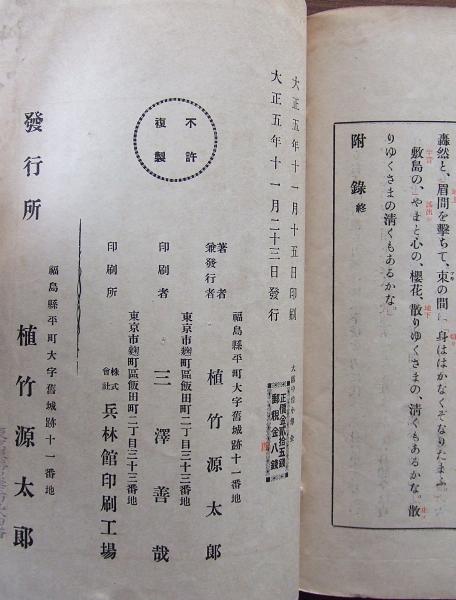 轟然と、眉間を擊ちて、束の間に、身ははかなくぞなりたまふ。
敷島の、やまと心の、櫻花、散りゆくさまの、淸くもあるかな。散
りゆくさまの淸くもあるかな。
附錄 終
大正五年十一月十五日印刷
大正五年十一月二十三日發行
正價金貳拾五錢
郵稅金八錢
不許
複製
福島縣平町大字舊城跡十一番地
著者
兼發行者 植竹源太郎
東京市麴町區飯田町二丁目三十三番地
印刷者 三澤善哉
東京市麴町區飯田町二丁目三十三番地
印刷所 株式會社 兵林館印刷工場
福島縣平町大字舊城跡十一番地
發行所 植竹源太郎